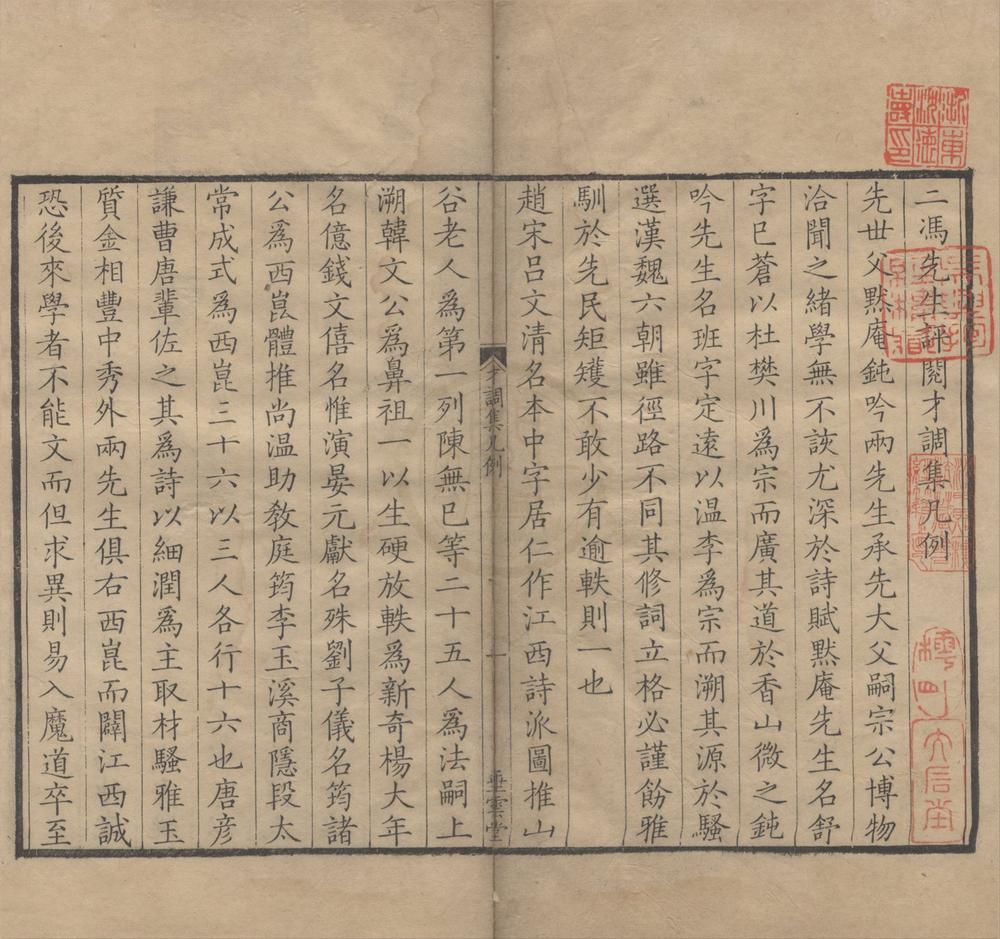 二馮先生評閱才調集凡例
先世父默庵鈍吟兩先生承先大父嗣宗公博物
洽聞之緒學無不詼尤深於詩賦默庵先生名舒
字已蒼以杜樊川為宗而廣其道於香山微之鈍
吟先生名班字定遠以温李為宗而溯其源於騷
選漢魏六朝雖徑路不同其修詞立格必謹飭雅
馴於先民矩矱不敢少有逾軼則一也
趙宋呂文清名本中字居仁作江西詩派圖推山
才調集凡例
一
垂雲堂
谷老人為第一列陳無已等二十五人為法嗣上
溯韓文公為鼻祖一以生硬放軼為新奇楊大年
名億錢文僖名惟演晏元獻名殊劉子儀名筠諸
公為西崑體推尚温助教庭筠李玉溪商隱段太
常成式為西崑三十六以三人各行十六也唐彦
謙曹唐輩佐之其為詩以細潤為主取材騷雅玉
質金相豐中秀外兩先生俱右西崑而闢江西誠
恐後來學者不能文而但求異則易入魔道卒至